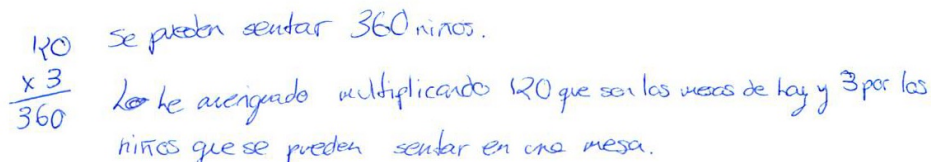 120 Se pueden sentar 360 niños.
x 3
360 Lo he averiguado multiplicando 120 que son las mesas de hay y 3 por los
niños que se pueden sentar en una mesa.